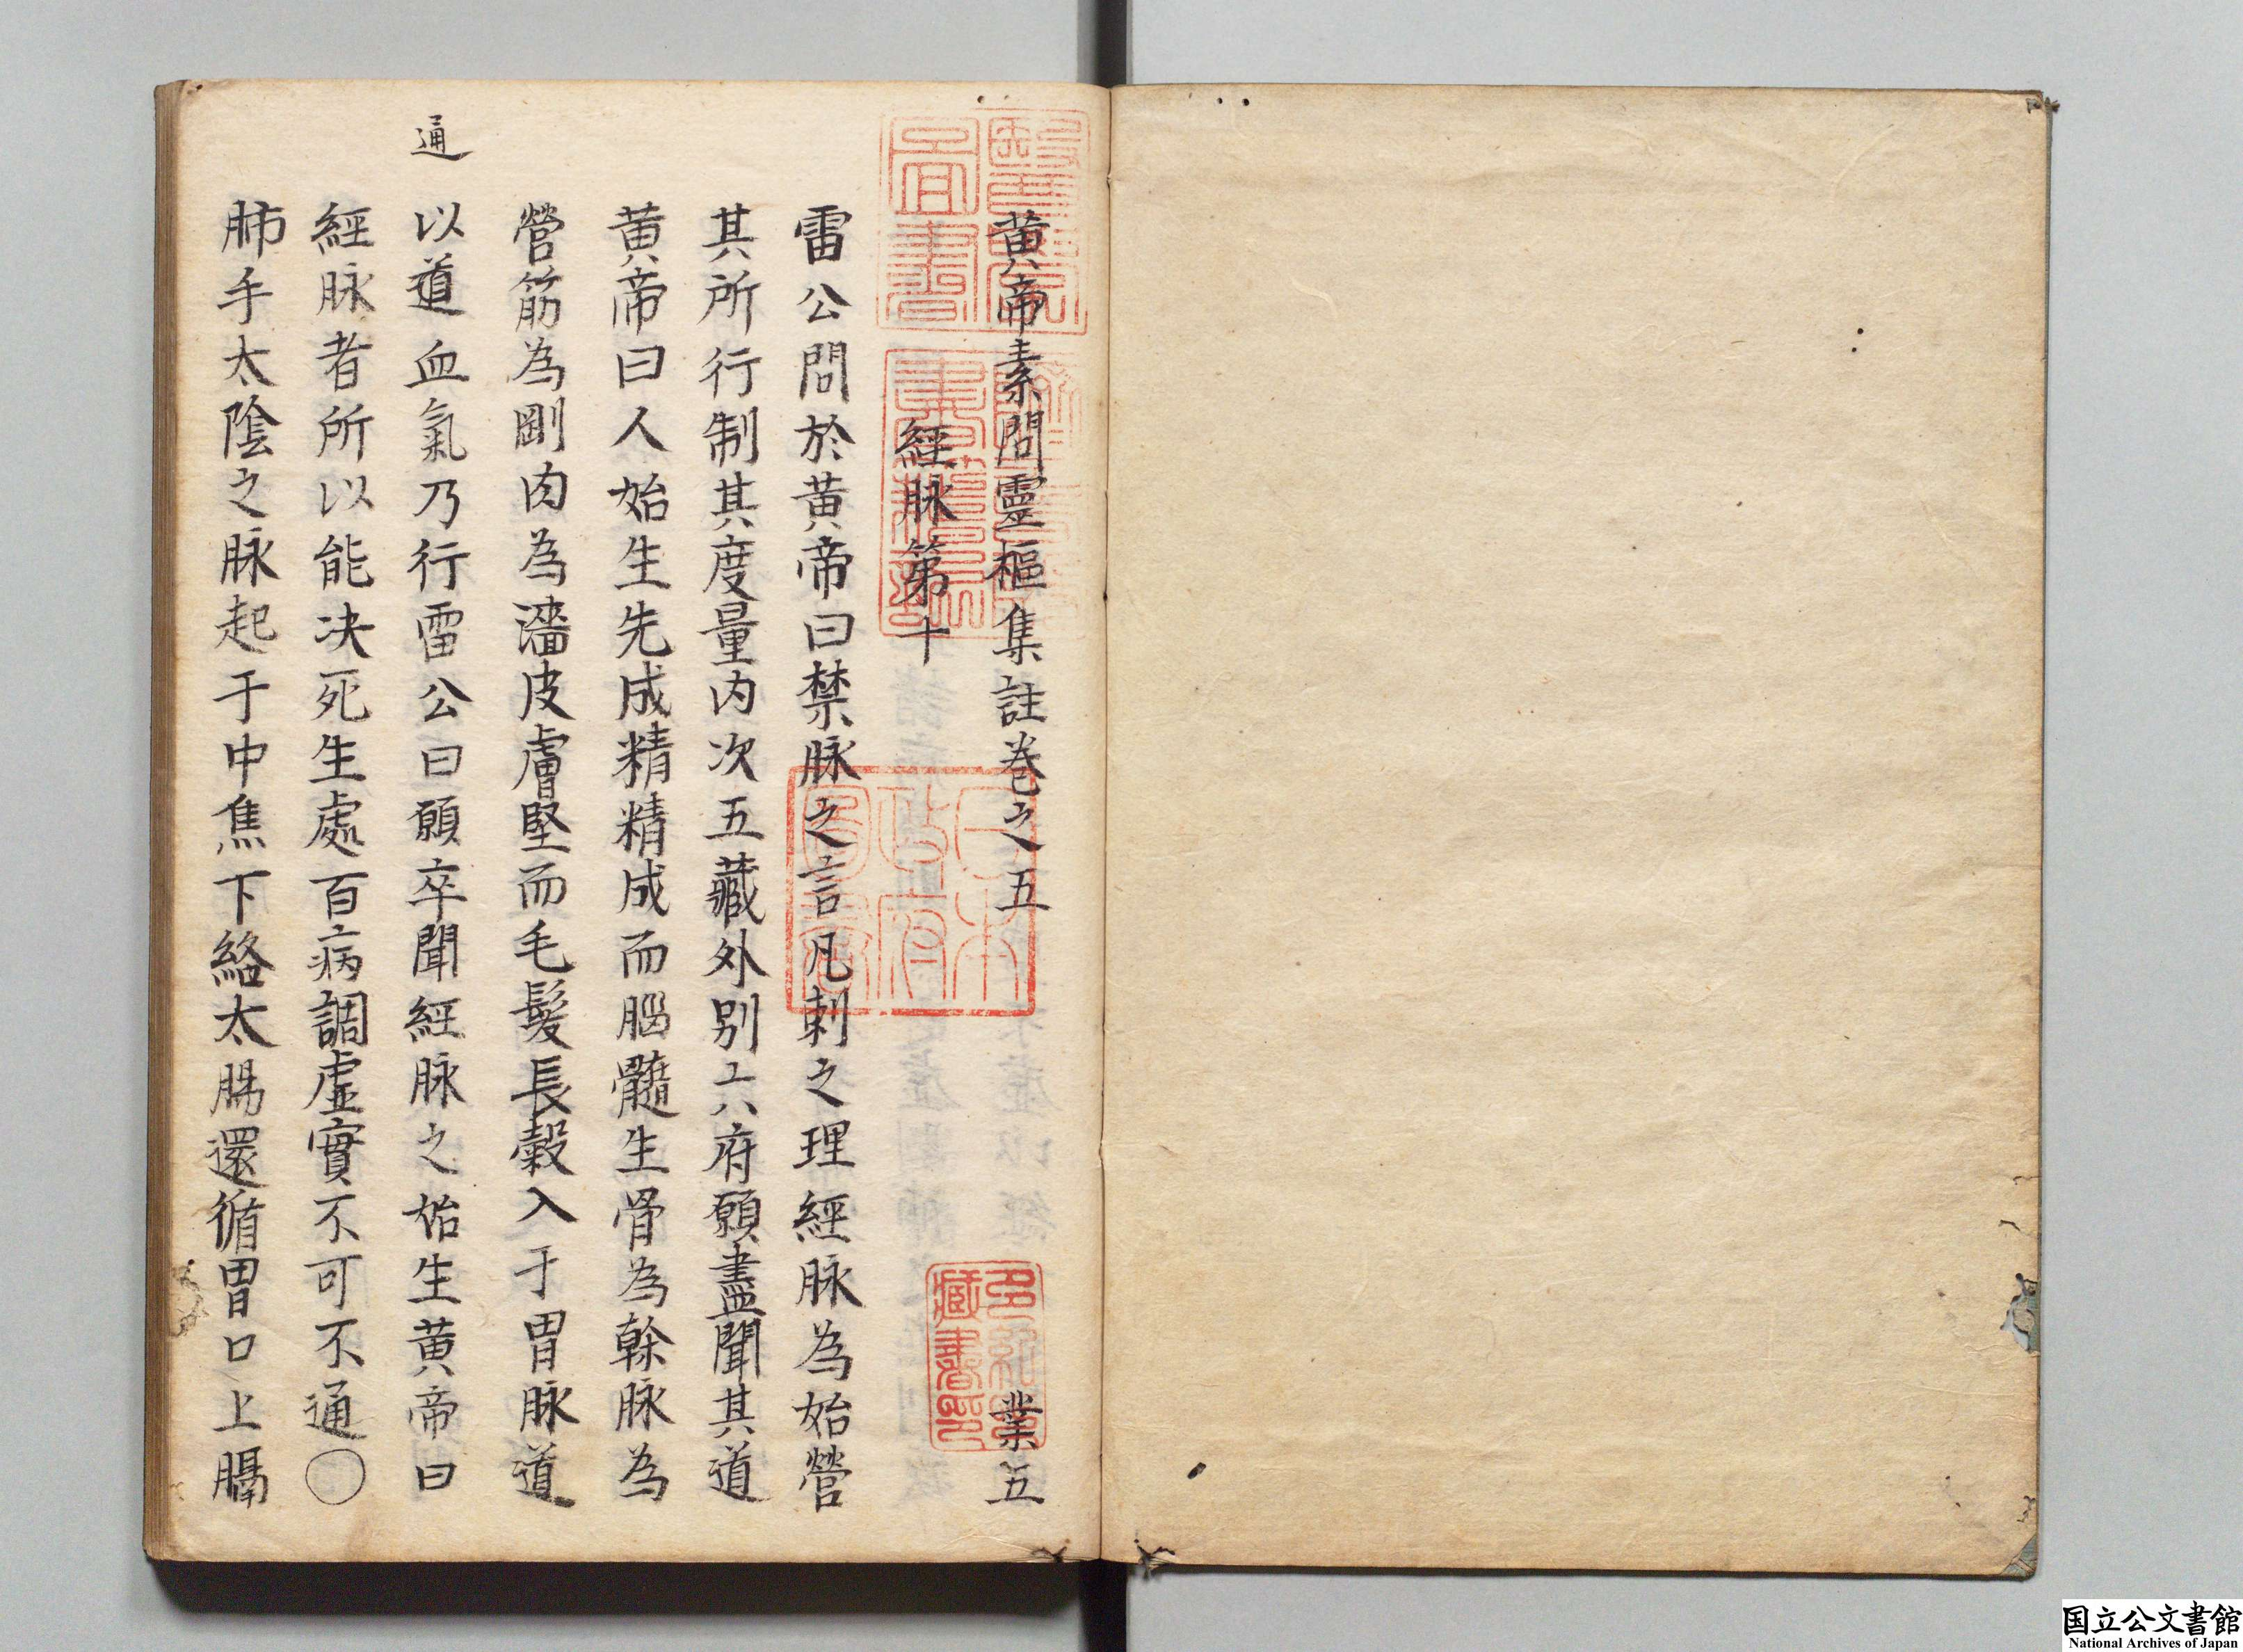 黄帝素問靈樞集註巻之五 業五
經脉第十
雷公問於黄帝曰禁脉之言凡刺之理經脉為始營
其所行制其度量内次五藏外別六府願盡聞其道
黄帝曰人始生先成精精成而腦髓生骨為幹脉為
營筋為剛肉為墻皮膚堅而毛髮長穀入于胃脉道
通
以道血氣乃行雷公曰願卒聞經脉之始生黄帝曰
經脉者所以能决死生處百病調虚實不可不通〇
肺手太陰之脉起于中焦下絡太腸還循胃口上膈
醫學圖書
日本政府圖書
多紀氏藏書印
国立公文書館
National Archives of Japan